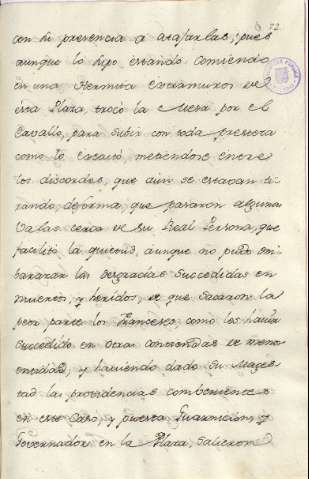 72
con su presencia a atajarlas, pues
aunque lo supo estando comiendo
en una Hermita extramuros de
esta Plaza, trocó la Mesa por el
Cavallo, para subir con toda presteza
como lo executó, metiendose entre
los discordes, que aun se estavan ti-
rando, de forma, que pararon algunas
Valas cerca de su Real Persona, que
facilitó la quietud, aunque no pudo em-
barazar las desgracias succedidas en
muertos, y heridos, de que sacaron la
peor parte los Franceses, como les havia
succedido en otras contiendas de menos
entidad, y haviendo dado su Mages-
tad las providencias combenientes
en este caso, y puesta Guarnicion, y
Governador en la Plaza, salieron